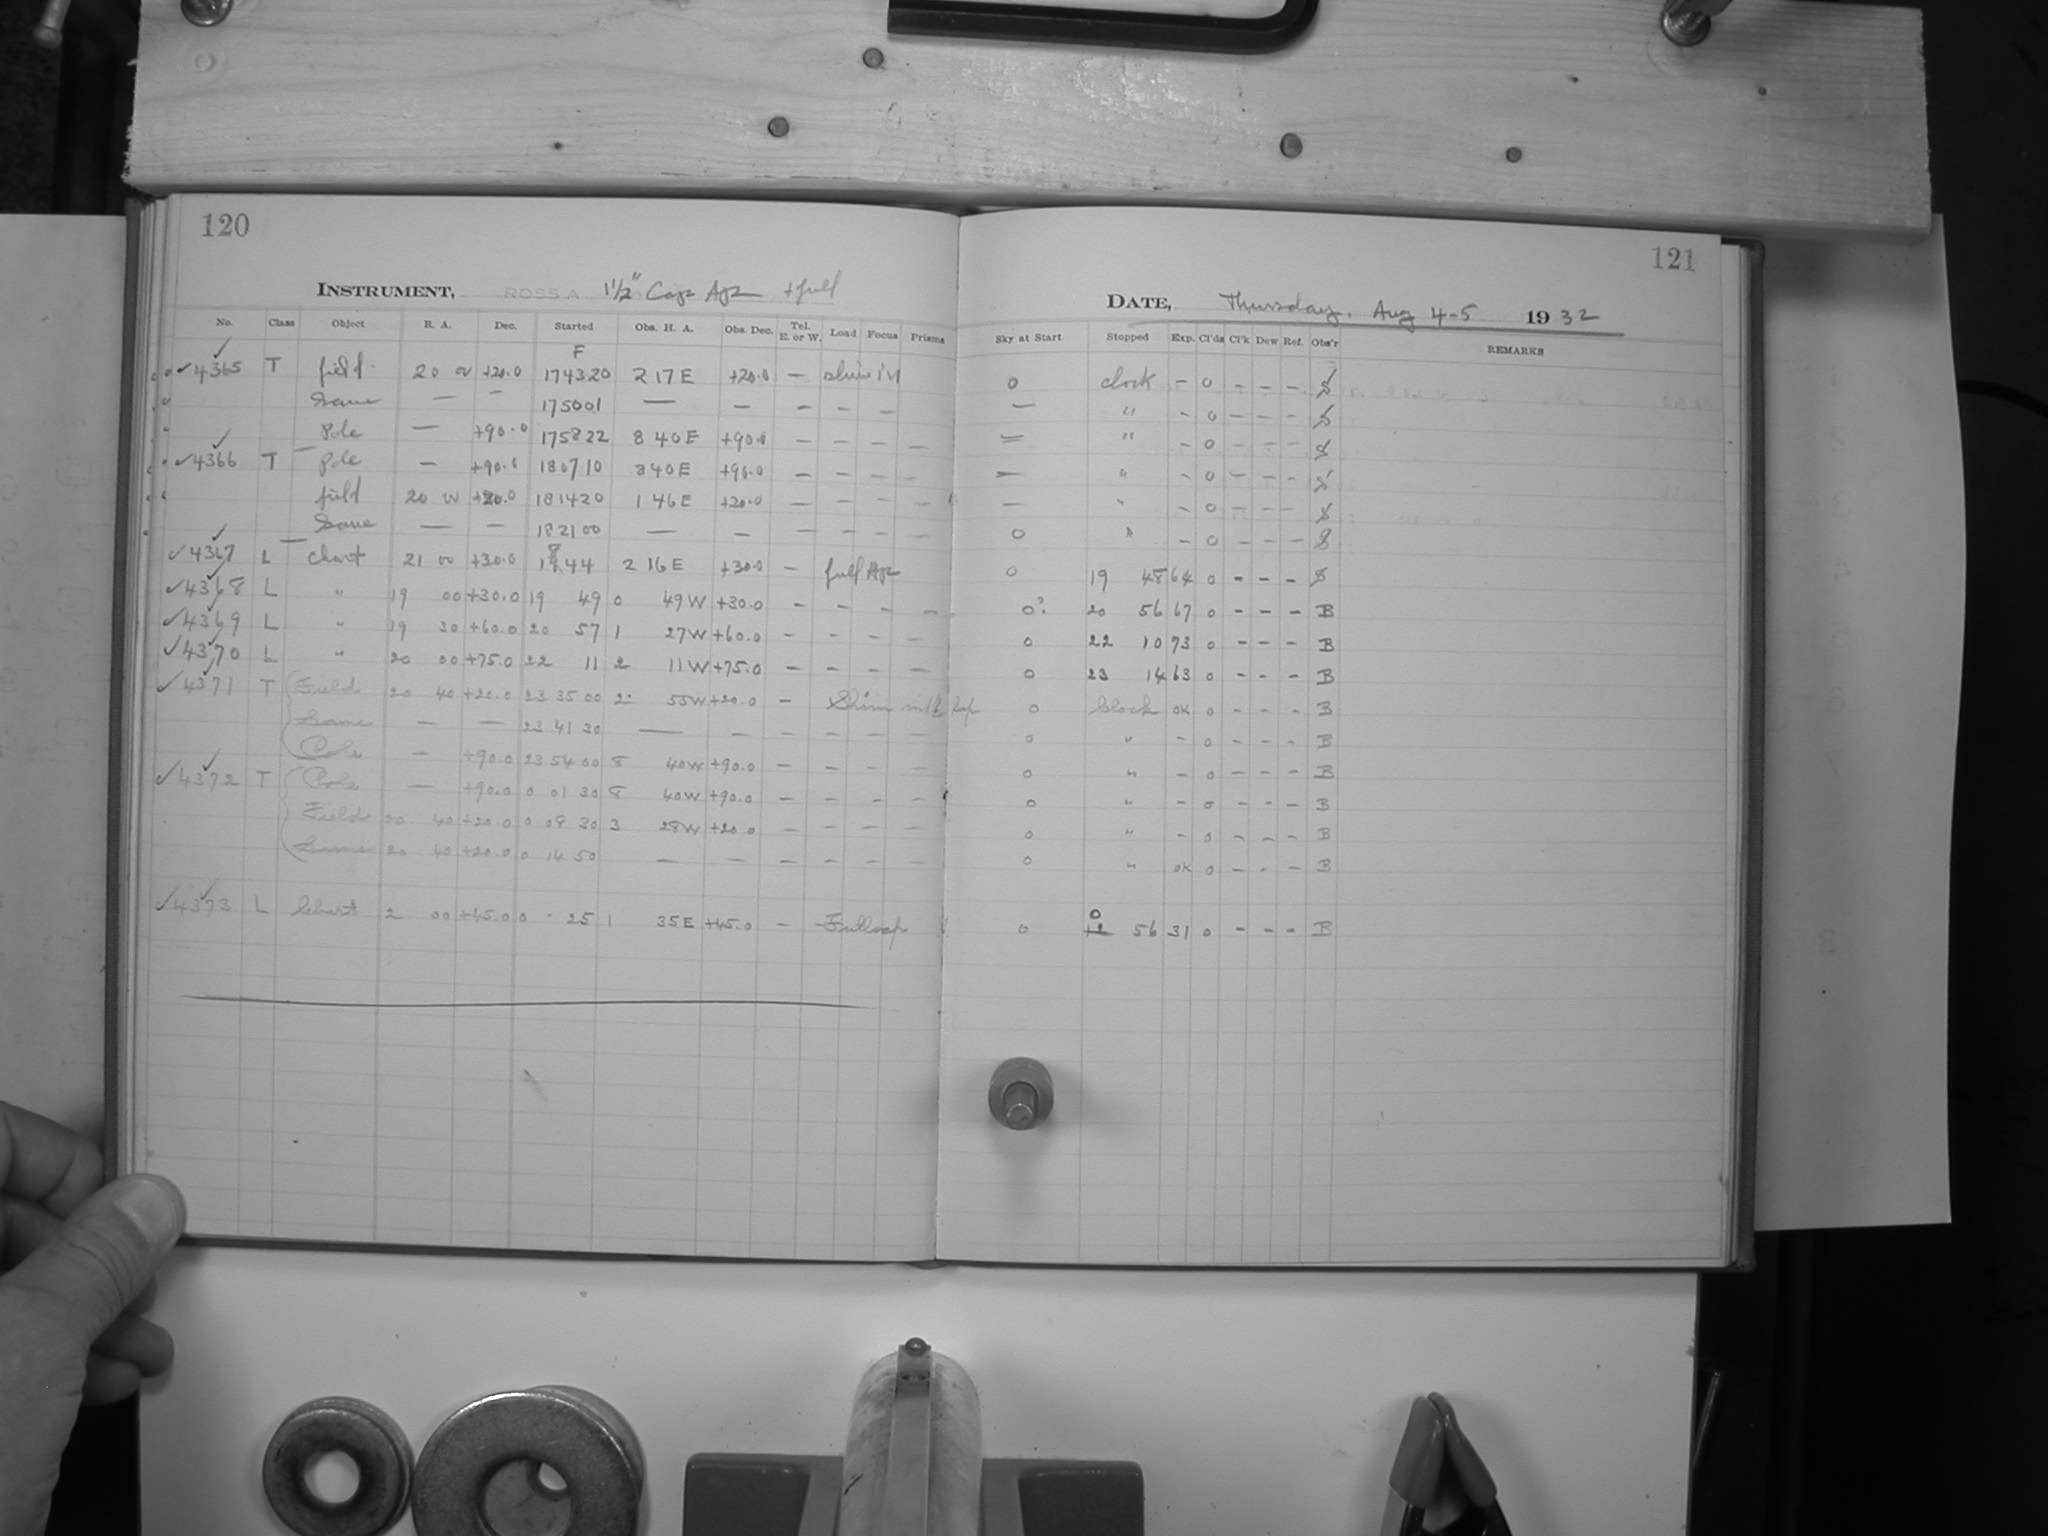 120
121
INSTRUMENT, ROSS A 1 1/2" Cap Ap + full
DATE, Thursday, Aug 4-5 1932
No. Class Object R. A. Dec. Started Obs. H. A. Obs. Dec. Tel. E. or W. Load Focus Prisms Sky at Start Stopped Exp. Cl'ds Cl'k Dew Ref. Obs'r REMARKS
F
4365 T field 20 00 +20.0 174320 2 17 E +20.0 — 0 clock — 0 — — — S
Same — — 175001 — — — — — — " — 0 — — — S
Pole — +90.0 175822 8 40 E +90.0 — — — — — " — 0 — — — S
4366 T Pole — +90.0 180710 8 40 E +90.0 — — — — — " — 0 — — — S
field 20 00 +20.0 181420 1 46 E +20.0 — — — — — " — 0 — — — S
Same — — 182100 — — — — — — 0 " — 0 — — — S
4367 L chart 21 00 +30.0 18 44 2 16 E +30.0 — full Ap 0 19 48 64 0 - - - S
4368 L " 19 00 +30.0 19 49 0 49 W +30.0 — — — — 0? 20 56 67 0 - - - B
4369 L " 19 30 +60.0 20 57 1 27 W +60.0 — — — — 0 22 10 73 0 - - - B
4370 L " 20 00 +75.0 22 11 2 11 W +75.0 — — — — 0 23 14 63 0 - - - B
4371 T Field 20 40 +20.0 23 35 00 2 55 W +20.0 — Shim 0 Clock OK 0 - - - B
Same — — 23 41 30 — — — — — — 0 " - 0 - - - B
Pole — +90.0 23 54 00 8 40 W +90.0 — — — — 0 " - 0 - - - B
4372 T Pole — +90.0 0 01 30 8 40 W +90.0 — — — — 0 " - 0 - - - B
Field 20 40 +20.0 0 08 30 3 28 W +20.0 — — — — 0 " - 0 - - - B
Same 20 40 +20.0 0 14 50 — — — — — — 0 " OK 0 - - - B
4373 L Chart 2 00 +45.0 0 25 1 35 E +45.0 — Full ap 0 0 56 31 0 - - - B